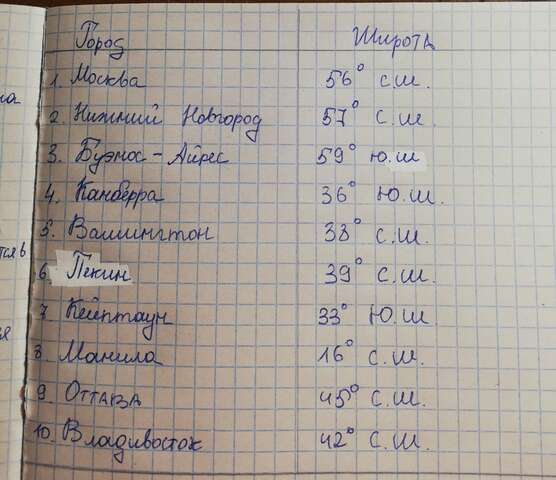 Город Широта
1. Москва 56° с.ш.
2. Нижний Новгород 57° с.ш.
3. Буэнос-Айрес 59° ю.ш
4. Канберра 36° ю.ш.
5. Вашингтон 38° с.ш.
6. Пекин 39° с.ш.
7. Кейптаун 33° ю.ш
8. Манила 16° с.ш.
9 Оттава 45° с.ш.
10. Владивосток 42° с.ш.